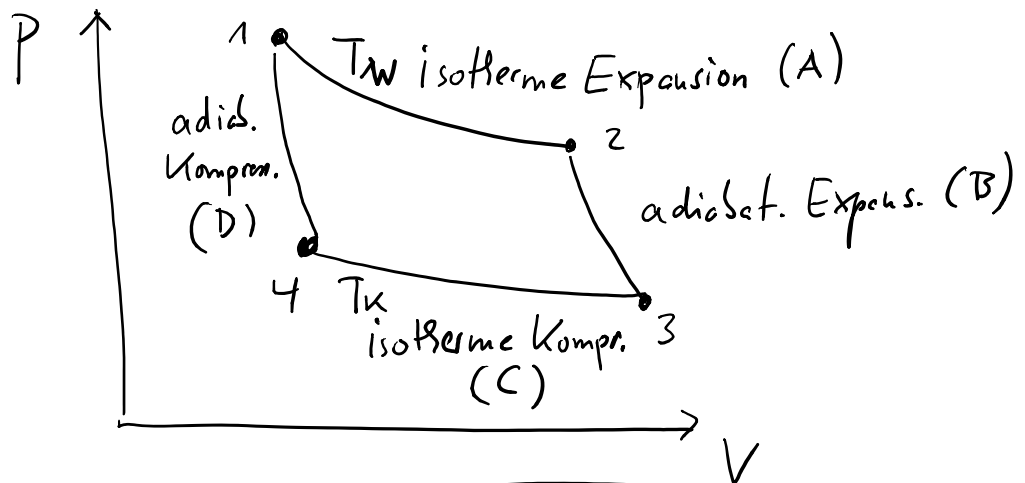 P
1
T_W isotherme Expansion (A)
adiab.
Kompress.
(D)
2
adiabat. Expans. (B)
4
T_K
isotherme Kompr.
(C)
3
V